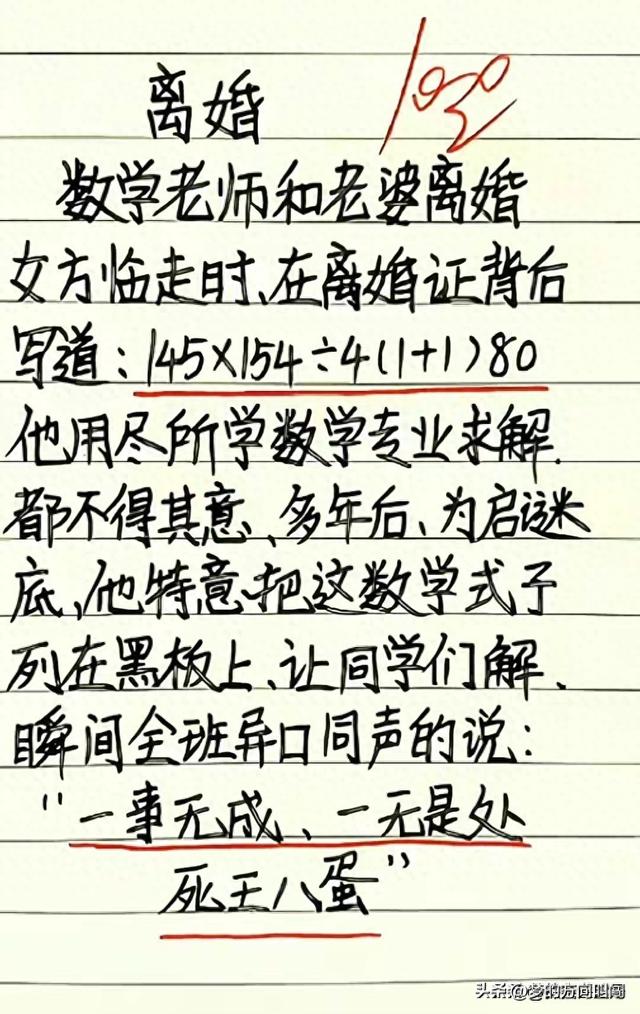 离婚
100
数学老师和老婆离婚
女方临走时、在离婚证背后
写道：145×154÷4(1+1)80
他用尽所学数学专业求解.
都不得其意、多年后、为启谜
底、他特意把这数学式子
列在黑板上、让同学们解、
瞬间全班异口同声的说：
“一事无成、一无是处
死王八蛋”
头条@梦的方向叫闯